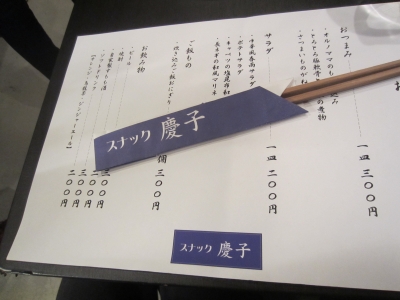 おつまみ
・オルノママのも
み
・とろとろ塩軟骨
の煮物
・さつまいものがね
一皿 三〇〇円
サラダ
・中華風春雨サラダ
・ポテトサラダ
・キャベツの塩昆布和
・長ネギの和風マリネ
一皿 二〇〇円
ご飯もの
・炊き込みご飯おにぎり
個 三〇〇円
お飲み物
・ビール
・焼酎
・自家製すもも酒
・ソフトドリンク
三〇〇円
三〇〇円
三〇〇円
二〇〇円
スナック 慶子
スナック 慶子